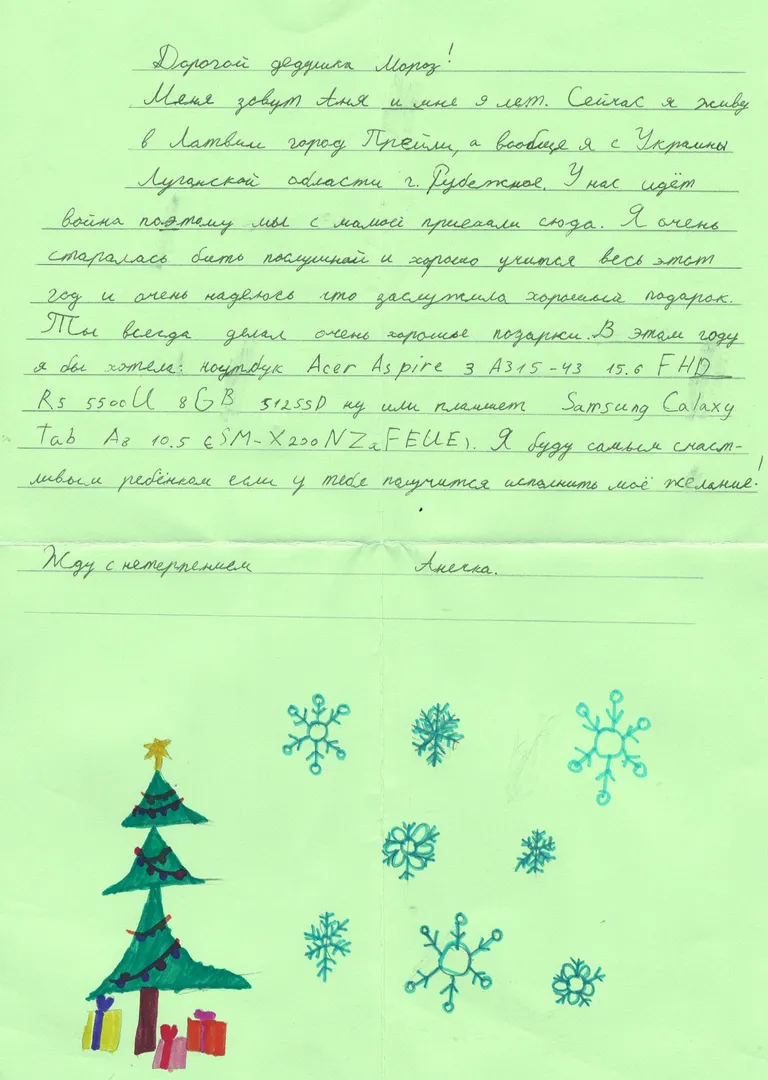 Дорогой дедушка Мороз!
Меня зовут Аня и мне 9 лет. Сейчас я живу
в Латвии город Прейли, а вообще я с Украины
Луганской области г. Рубежное. У нас идёт
война поэтому мы с мамой приехали сюда. Я очень
старалась быть послушной и хорошо учится весь этот
год и очень надеюсь что заслужила хороший подарок.
Ты всегда делал очень хорошые подарки. В этом году
я бы хотела: ноутбук Acer Aspire 3 A315-43 15.6 FHD
R5 5500U 8GB 512SSD ну или планшет Samsung Galaxy
Tab A8 10.5 (SM-X200NZaFEUE). Я буду самым счаст-
ливым ребёнком если у тебя получится исполнить моё желание!
Жду с нетерпением Анечка.